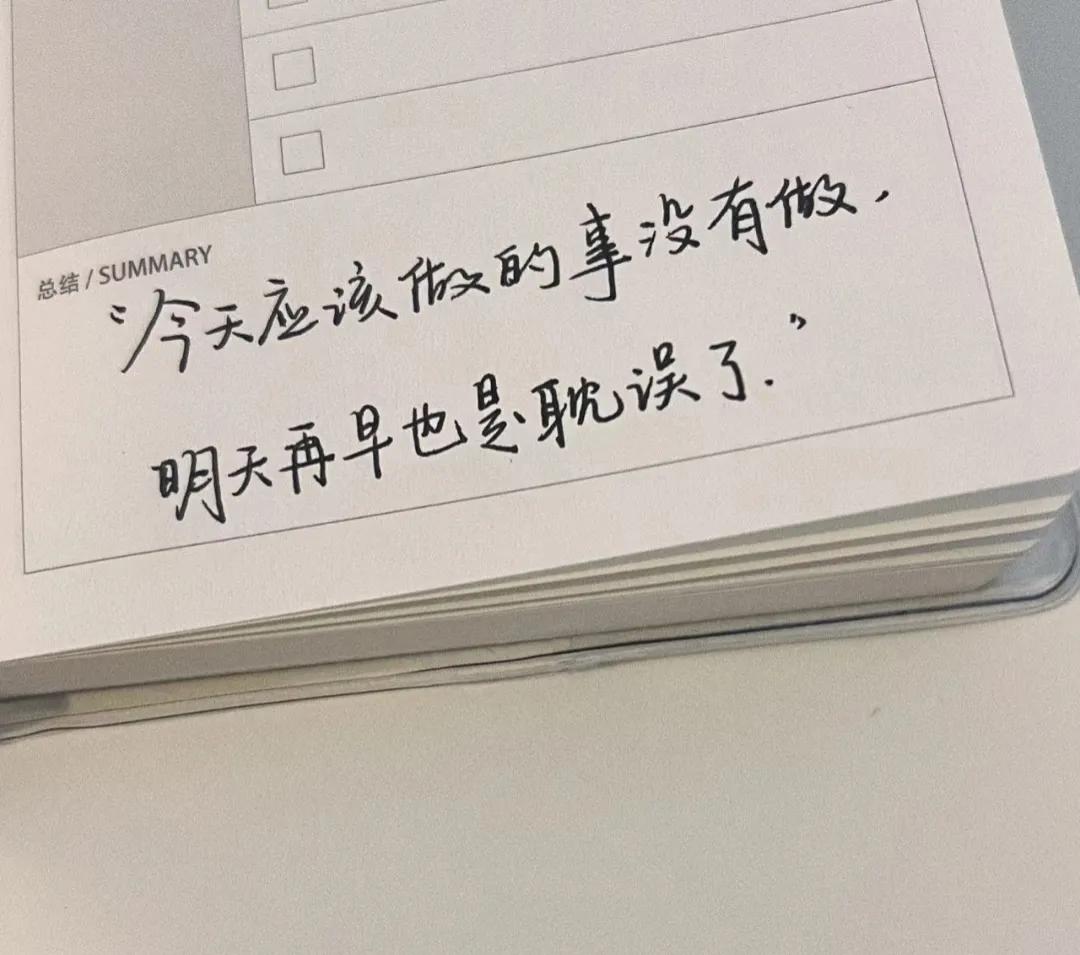 总结 / SUMMARY
“今天应该做的事没有做，
明天再早也是耽误了.”